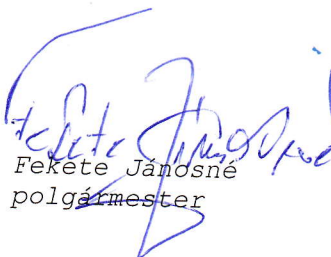 Fekete Jánosné
Fekete Jánosné
polgármester